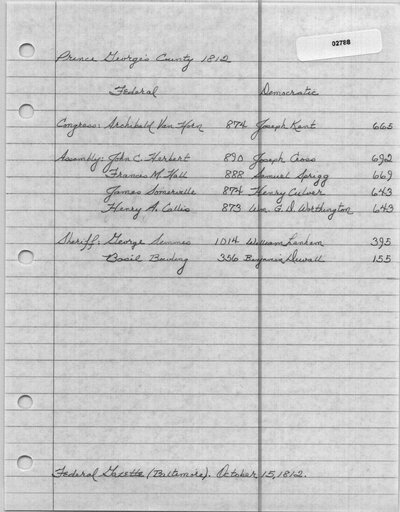 02788
Prince George's County 1812
Federal Democratic
Congress: Archibald Van Horn 874 Joseph Kent 665
Assembly: John C. Herbert 890 Joseph Cross 692
Francis M. Hall 888 Samuel Sprigg 669
James Somerville 874 Henry Culver 643
Henry A. Callis 873 Wm. G. D. Worthington 643
Sheriff: George Semmes 1014 William Lanham 395
Basil Bowling 356 Benjamin Duvall 155
Federal Gazette (Baltimore). October 15, 1812.